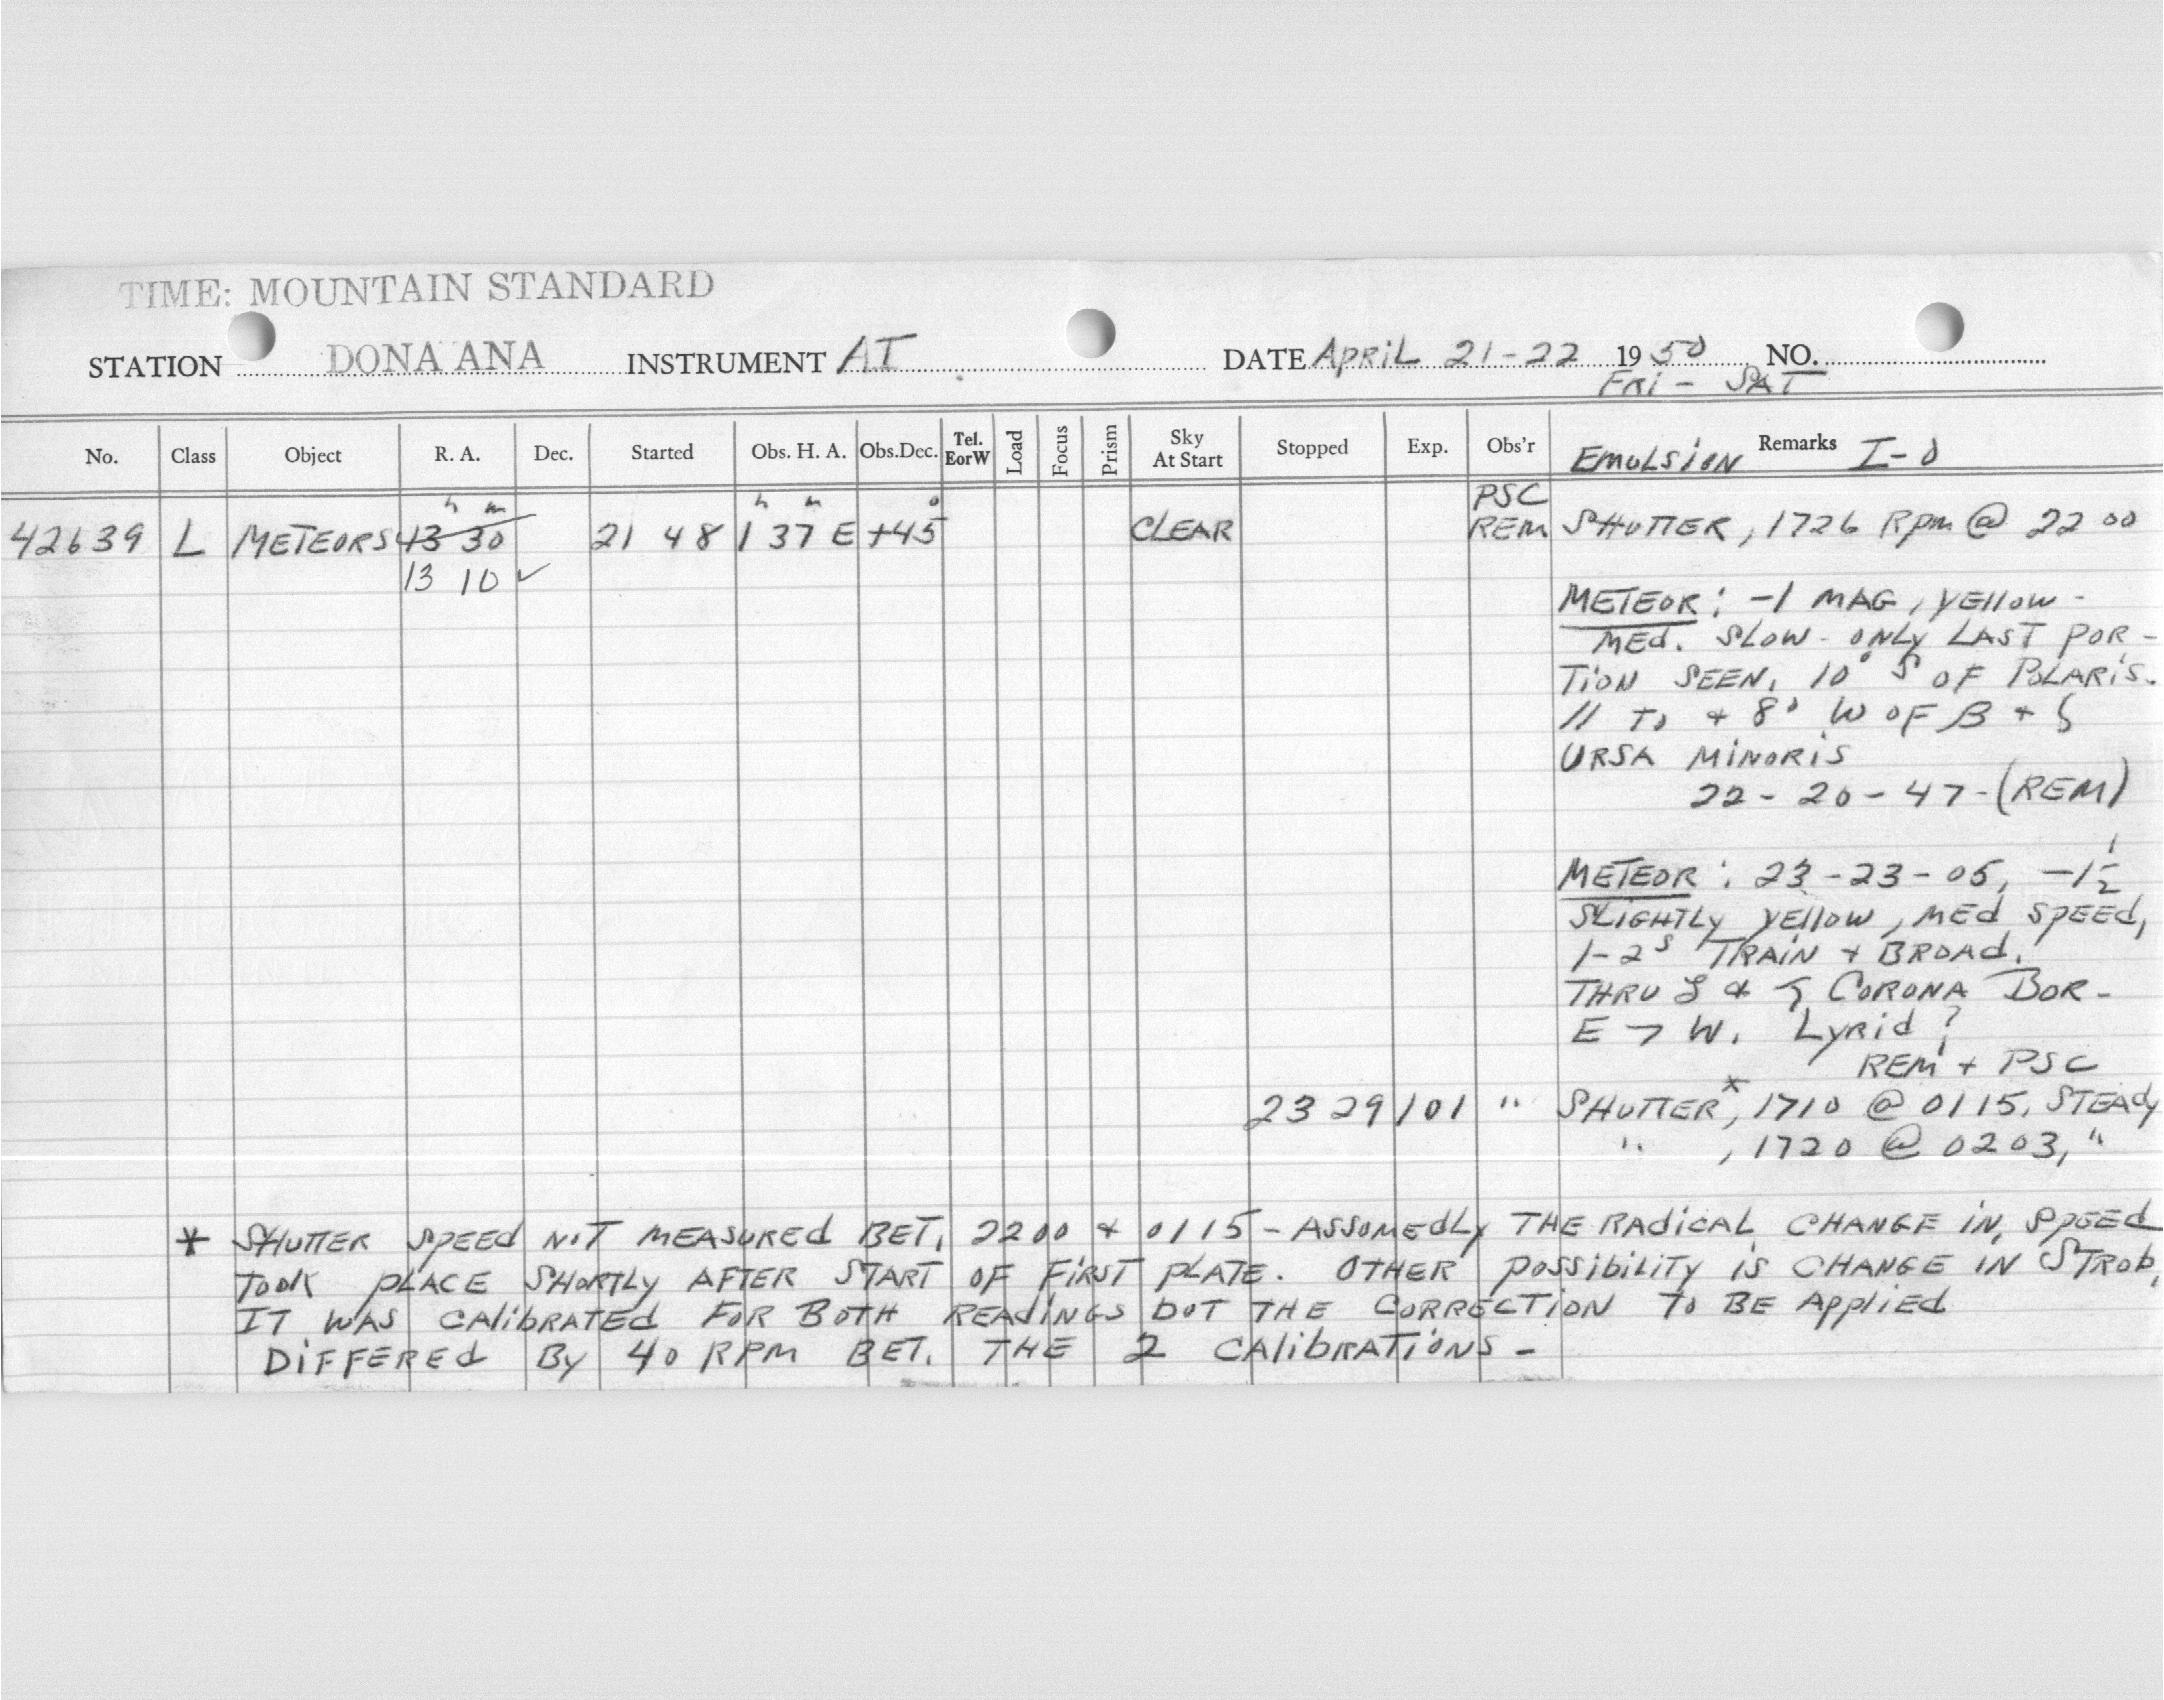 TIME: MOUNTAIN STANDARD
STATION DONA ANA INSTRUMENT AI DATE APRIL 21-22 1950 NO.
FRI - SAT
No. Class Object R. A. Dec. Started Obs. H. A. Obs. Dec. Tel. E or W Load Focus Prism Sky At Start Stopped Exp. Obs'r Remarks
EMULSION I-O
h m h m ° PSC
42639 L METEORS 13 30 21 48 1 37 E +45 CLEAR REM SHUTTER, 1726 RPM @ 22 00
13 10 ✓
METEOR: -1 MAG, YELLOW -
MED. SLOW - ONLY LAST POR-
TION SEEN, 10° S OF POLARIS.
// TO + 8° W OF β +
URSA MINORIS
22-20-47-(REM)
METEOR: 23-23-05, -1½
SLIGHTLY YELLOW, MED SPEED,
1-2ˢ TRAIN + BROAD.
THRU & CORONA BOR-
E → W. LYRID?
REM + PSC
23 29 101 " SHUTTER*, 1710 @ 0115, STEADY
" , 1720 @ 0203, "
* SHUTTER SPEED NOT MEASURED BET. 2200 & 0115 - ASSUMEDLY THE RADICAL CHANGE IN SPEED
TOOK PLACE SHORTLY AFTER START OF FIRST PLATE. OTHER POSSIBILITY IS CHANGE IN STROB,
IT WAS CALIBRATED FOR BOTH READINGS BUT THE CORRECTION TO BE APPLIED
DIFFERED BY 40 RPM BET. THE 2 CALIBRATIONS -